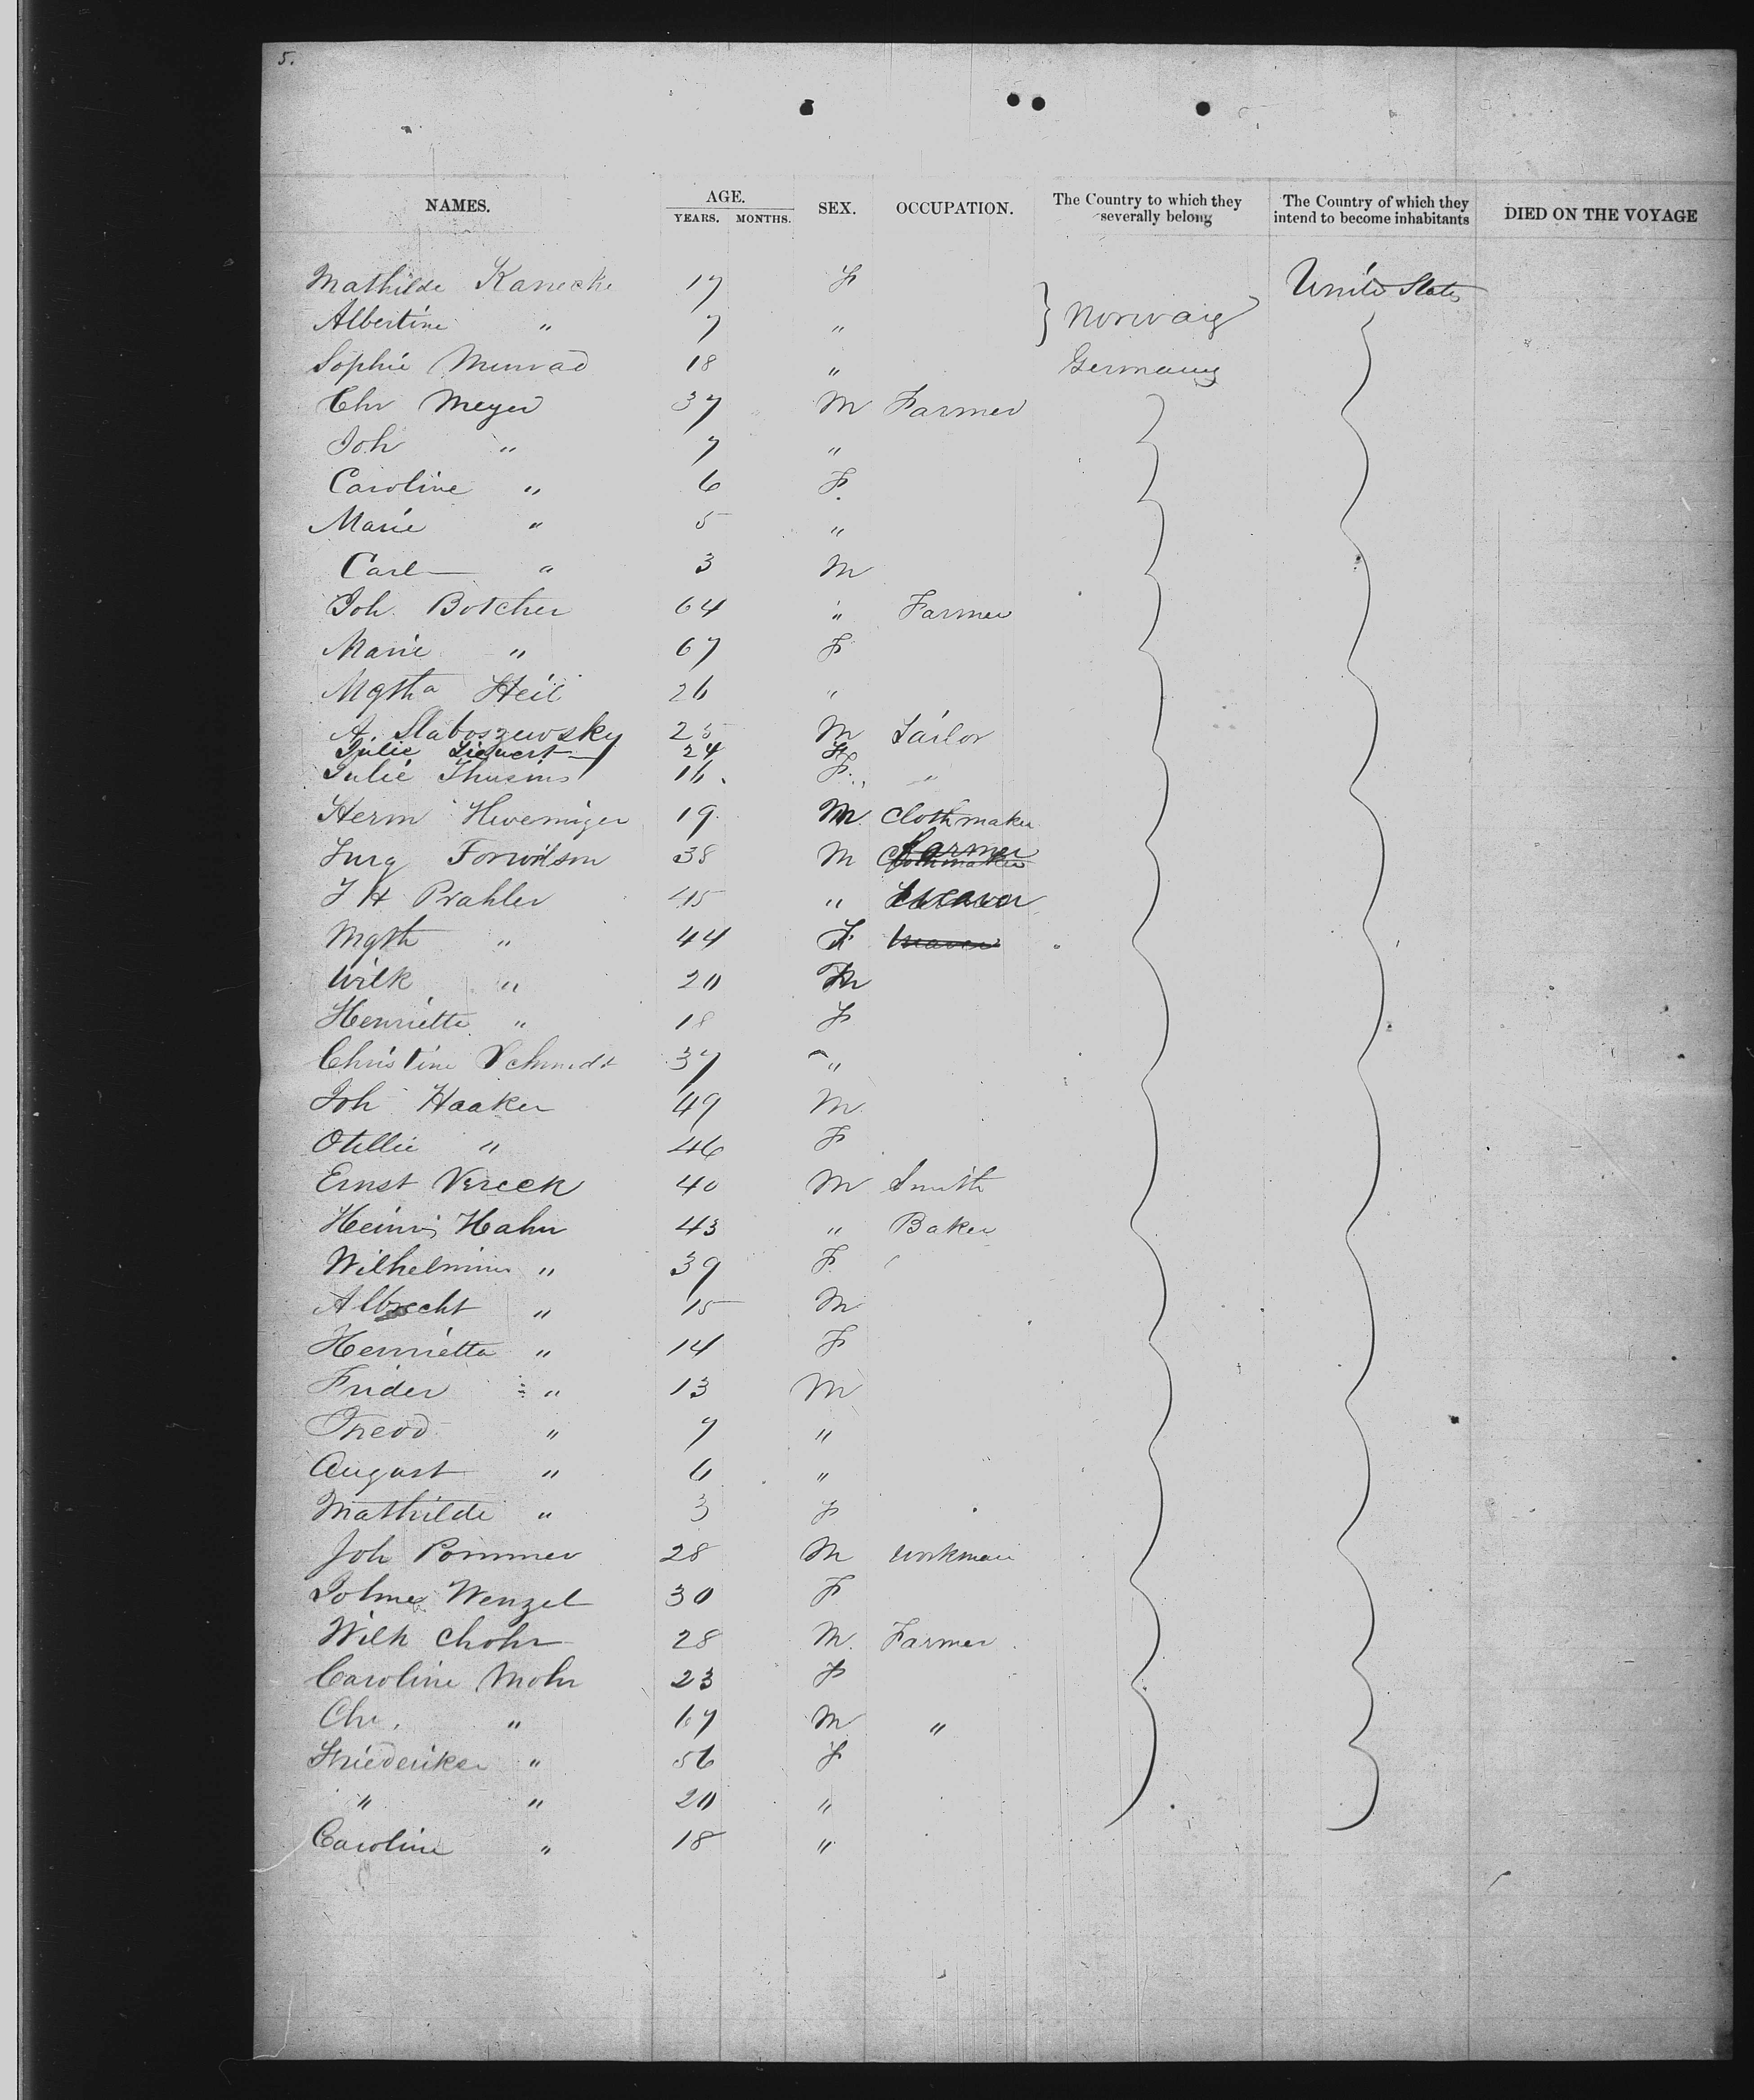 5.
NAMES. AGE. YEARS. MONTHS. SEX. OCCUPATION. The Country to which they severally belong The Country of which they intend to become inhabitants DIED ON THE VOYAGE
Mathilde Kanecke 17 F United States
Albertine " 7 " } Norwaig
Sophie Munrad 18 " Germany
Chr Meyer 37 M Farmer
Joh " 7 "
Caroline " 6 F.
Marie " 5 "
Carl " 3 M
Joh. Botcher 64 " Farmer
Marie " 67 F
Mgtha Heil 26 "
A. Slaboszewsky 25 M Tailor
Julie Siewert 24 F
Julie Thusius 16. F. "
Herm 19. M. Clothmaker
Jurg 38 M Farmer Clothmaker
J H Prahler 45 "
Mgth " 44 F Weaver
Wilh " 20 M
Henriette " 18 F
Christine Schmidt 37 "
Joh Haaker 49 M.
Otillie " 46 F
Ernst Vereck 40 M Smith
Heinr. Hahn 43 " Baker
Wilhelmine " 39 F
Albrecht " 15 M
Henrietta " 14 F
Frider " 13 M
Theod " 7 "
August " 6 "
Mathilde " 3 F
Joh Pommer 28 M workman
Johne Wenzel 30 F
Wilh Chohr 28 M. Farmer
Caroline Mohr 23 F
Chr. " 17 M "
Friederike " 56 F
" " 20 "
Caroline " 18 "